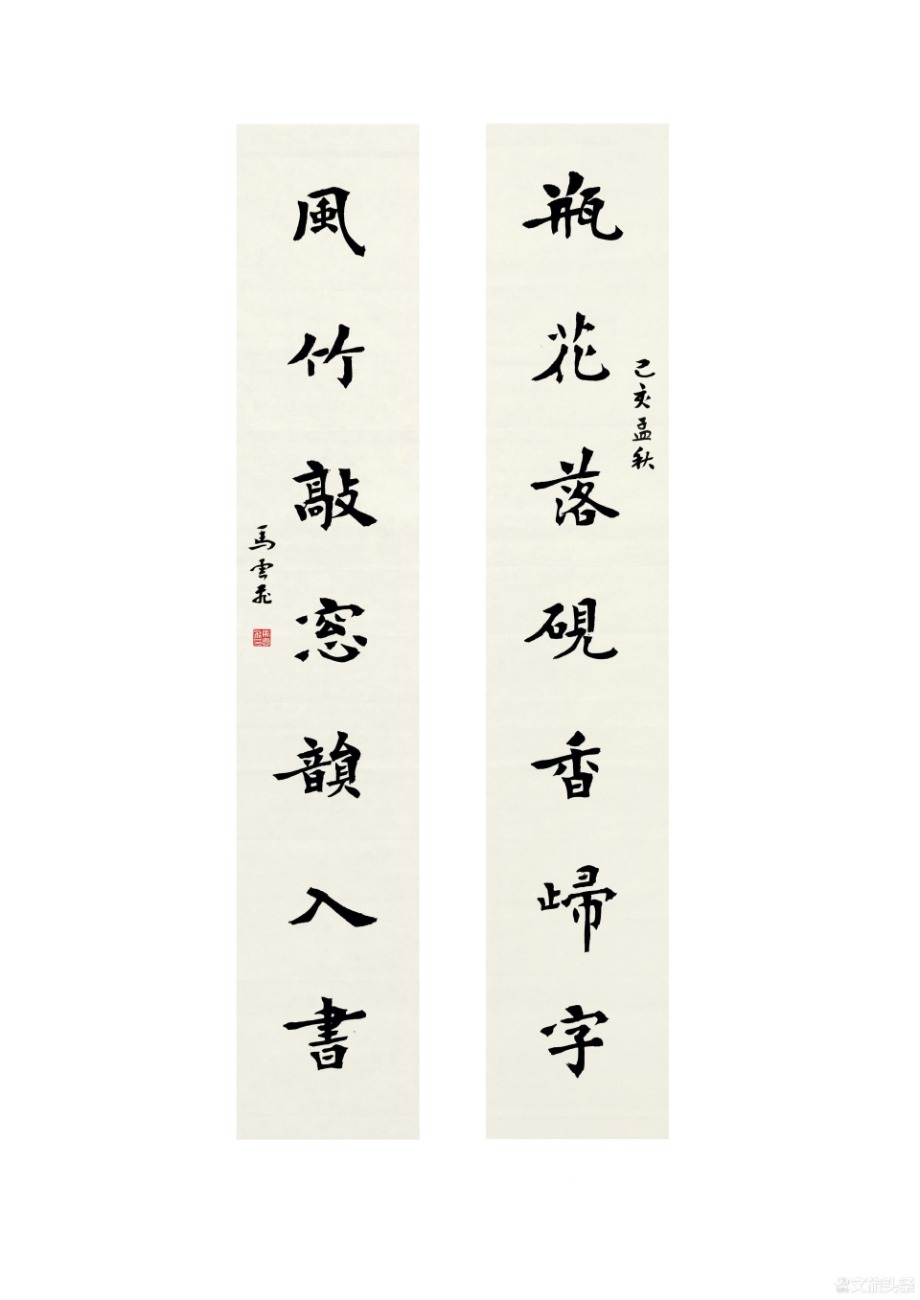 瓶花落硯香歸字
己亥孟秋
風竹敲窓韻入書
馬雲飛
文旅头条